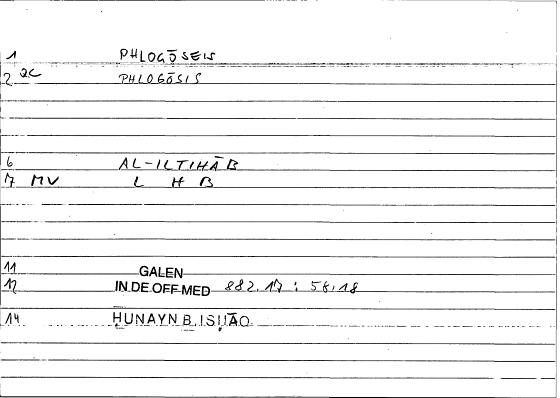 1 PHLOGŌSEIS
2 QC PHLOGŌSIS
6 AL-ILTIHĀB
7 MV L H B
11 GALEN
12 IN DE OFF MED 882.17 : 56,18
14 ḤUNAYN B. ISḤĀQ